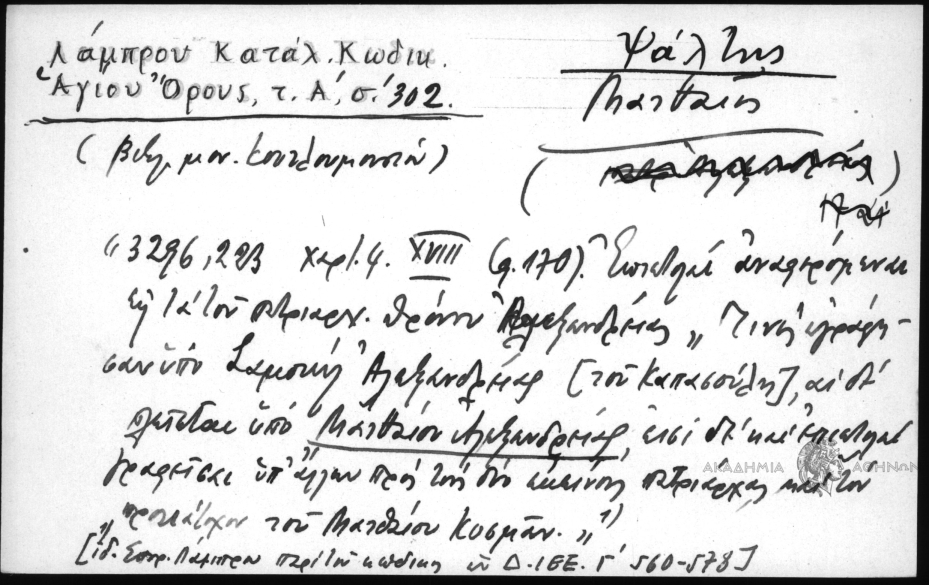 Λάμπρου Κατάλ. Κωδικ.
Ἁγίου Ὄρους, τ. Α΄, σ. 302.
Ψάλτης
Ματθαῖος
(Βιβλ. μον. Κουτλουμουσίου)
„3296, 223 Χαρτ. 4. XVIII (φ. 170). Ἐπιστολαὶ ἀναφερόμεναι
εἰς τὰ τοῦ πατριαρχ. θρόνου Ἀλεξανδρείας „Τινὲς ἐγράφη-
σαν ὑπὸ Σαμουὴλ Ἀλεξανδρείας [τοῦ Καπασούλη], αἱ δὲ
πλεῖσται ὑπὸ Ματθαίου Ἀλεξανδρείας, εἰσὶ δὲ καὶ ἐπιστολαὶ
γραφεῖσαι ὑπ' ἄλλων πρὸς τοὺς δύο ἐκείνους πατριάρχας καὶ τὸν
προκάτοχον τοῦ Ματθαίου Κοσμᾶν.„ 1)
[ἰδ. Σπυρ. Λάμπρου περὶ τοῦ κώδικος ἐν Δ. ΙΕΕ. Γ΄ 560-578]
ΑΚΑΔΗΜΙΑ ΑΘΗΝΩΝ